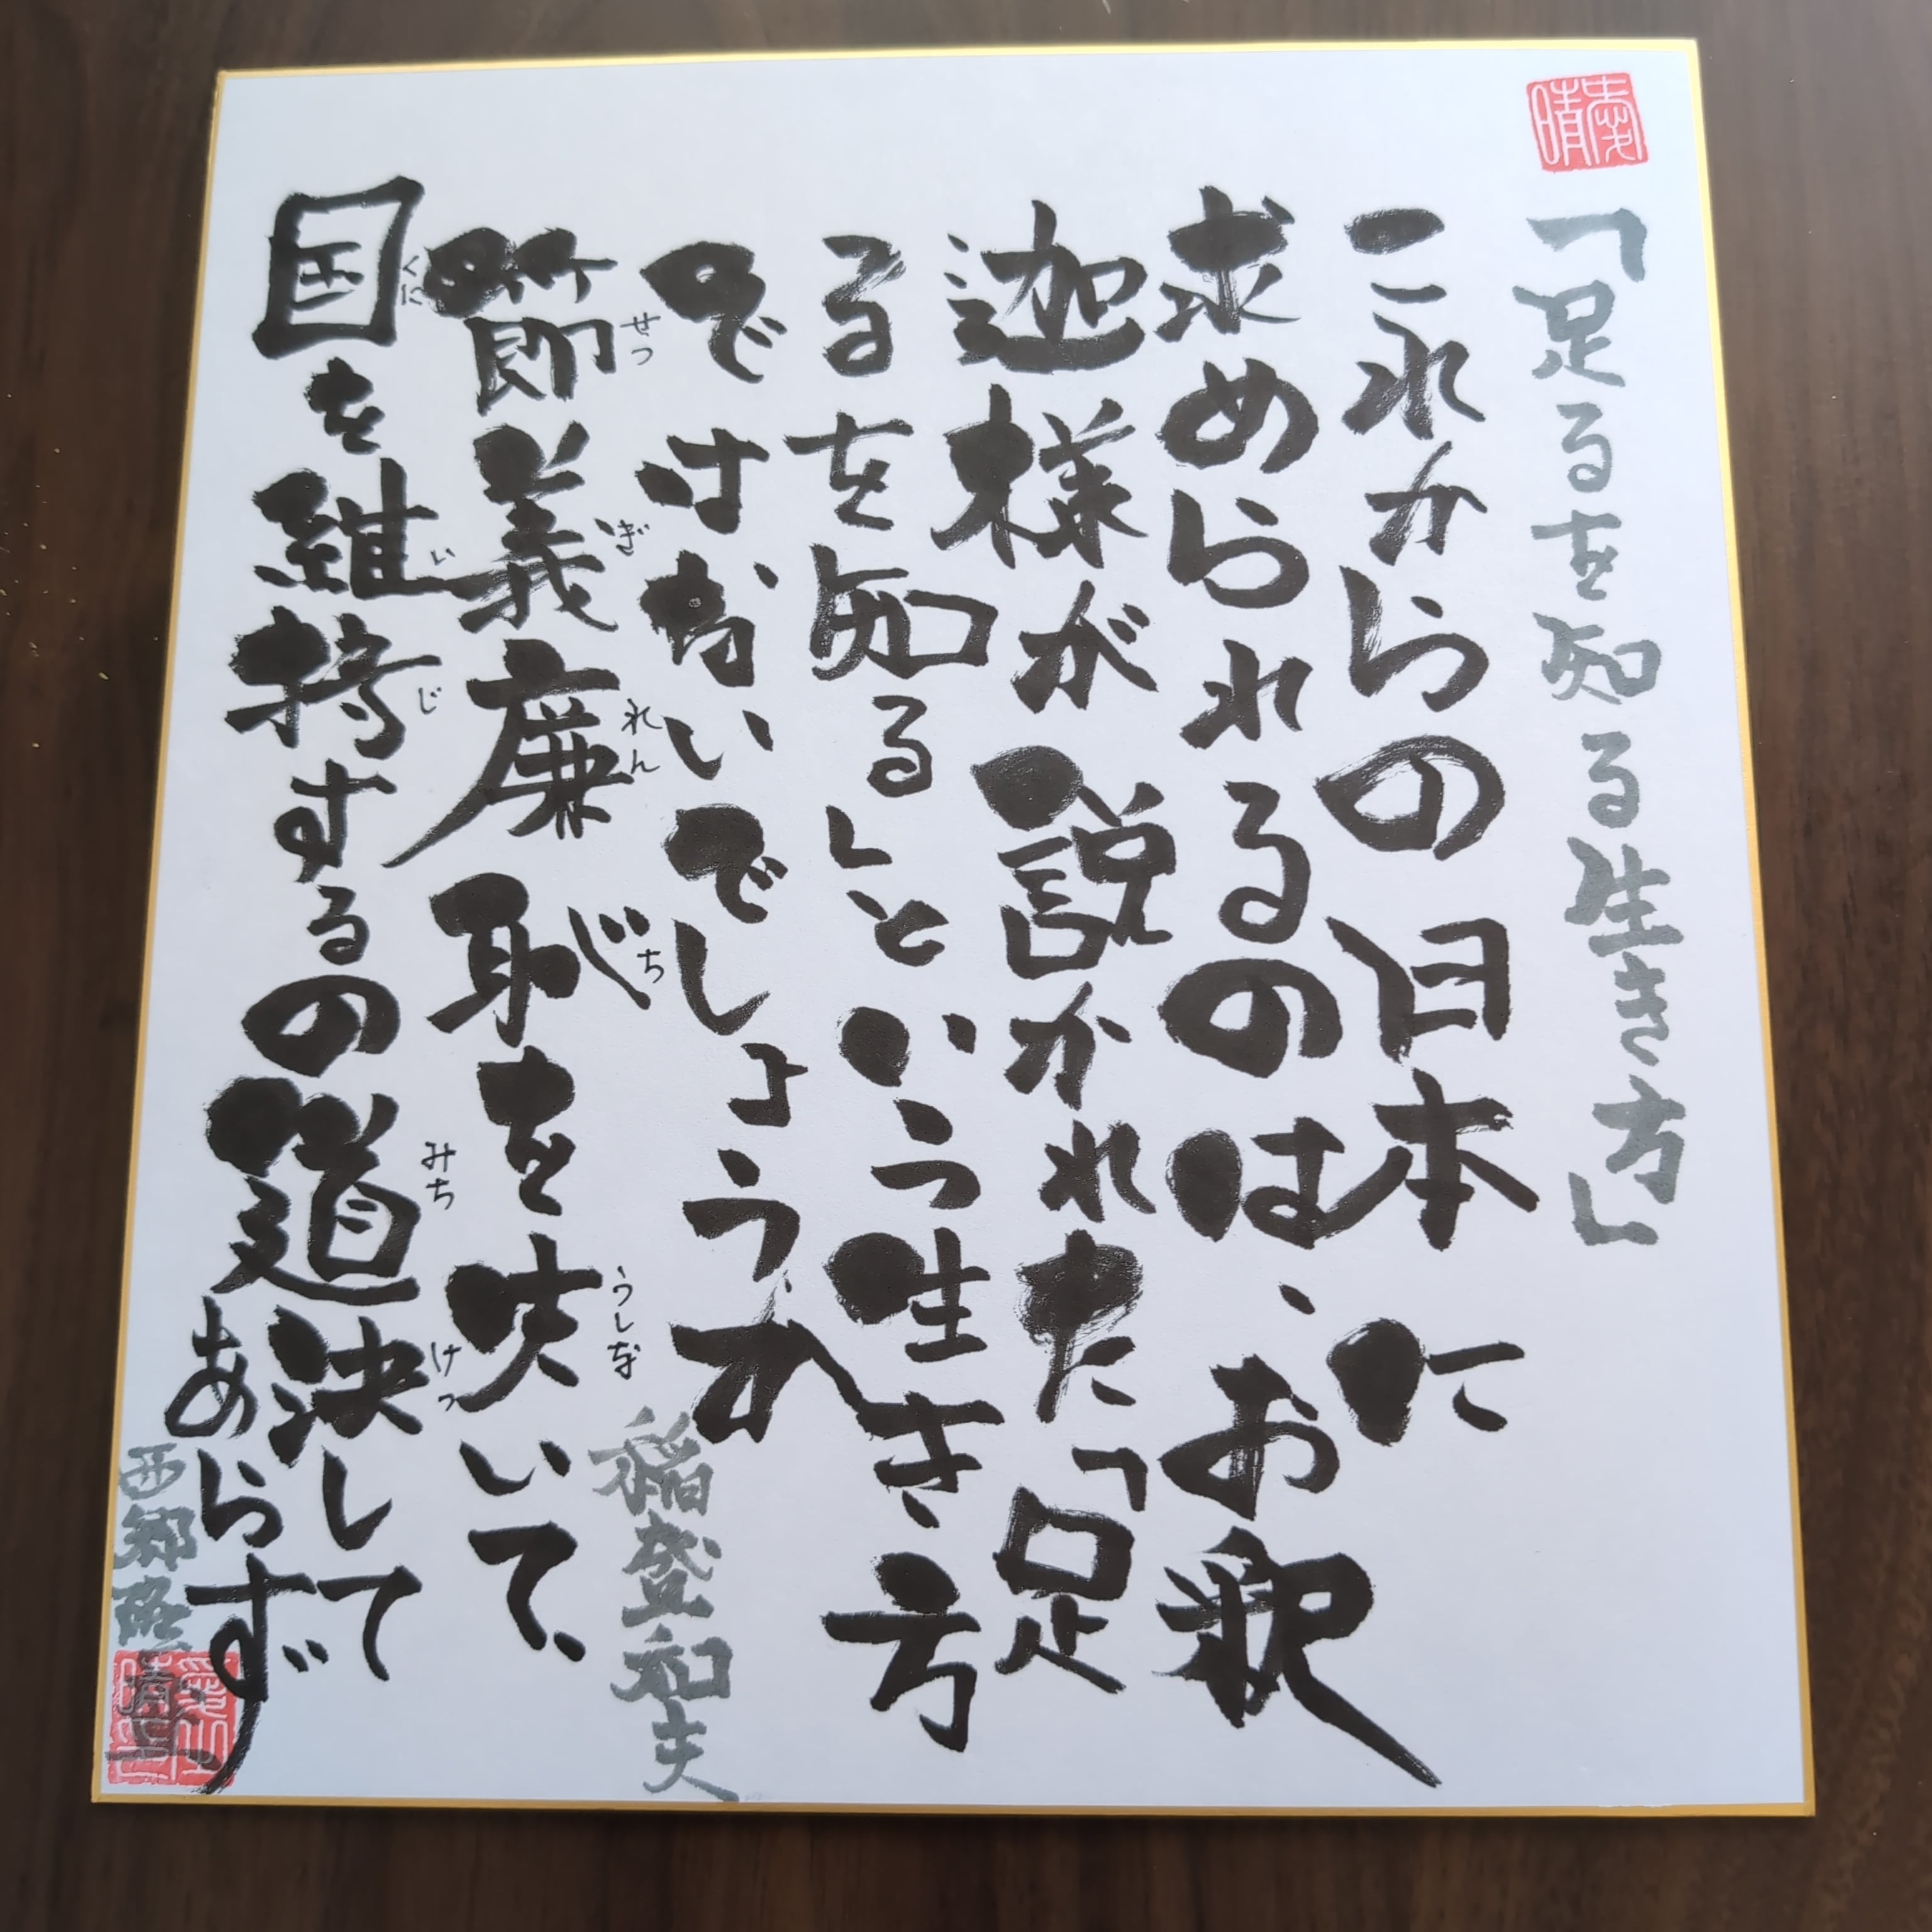 「足るを知る生き方」
これからの日本に
求められるのは、お釈
迦様が説かれた「足
るを知る」という生き方
ではないでしょうか
稲盛和夫
節義廉恥を失いて、
せつ ぎ れん ち うしな
国を維持するの道決して
くに い じ みち けつ
あらず
西郷隆